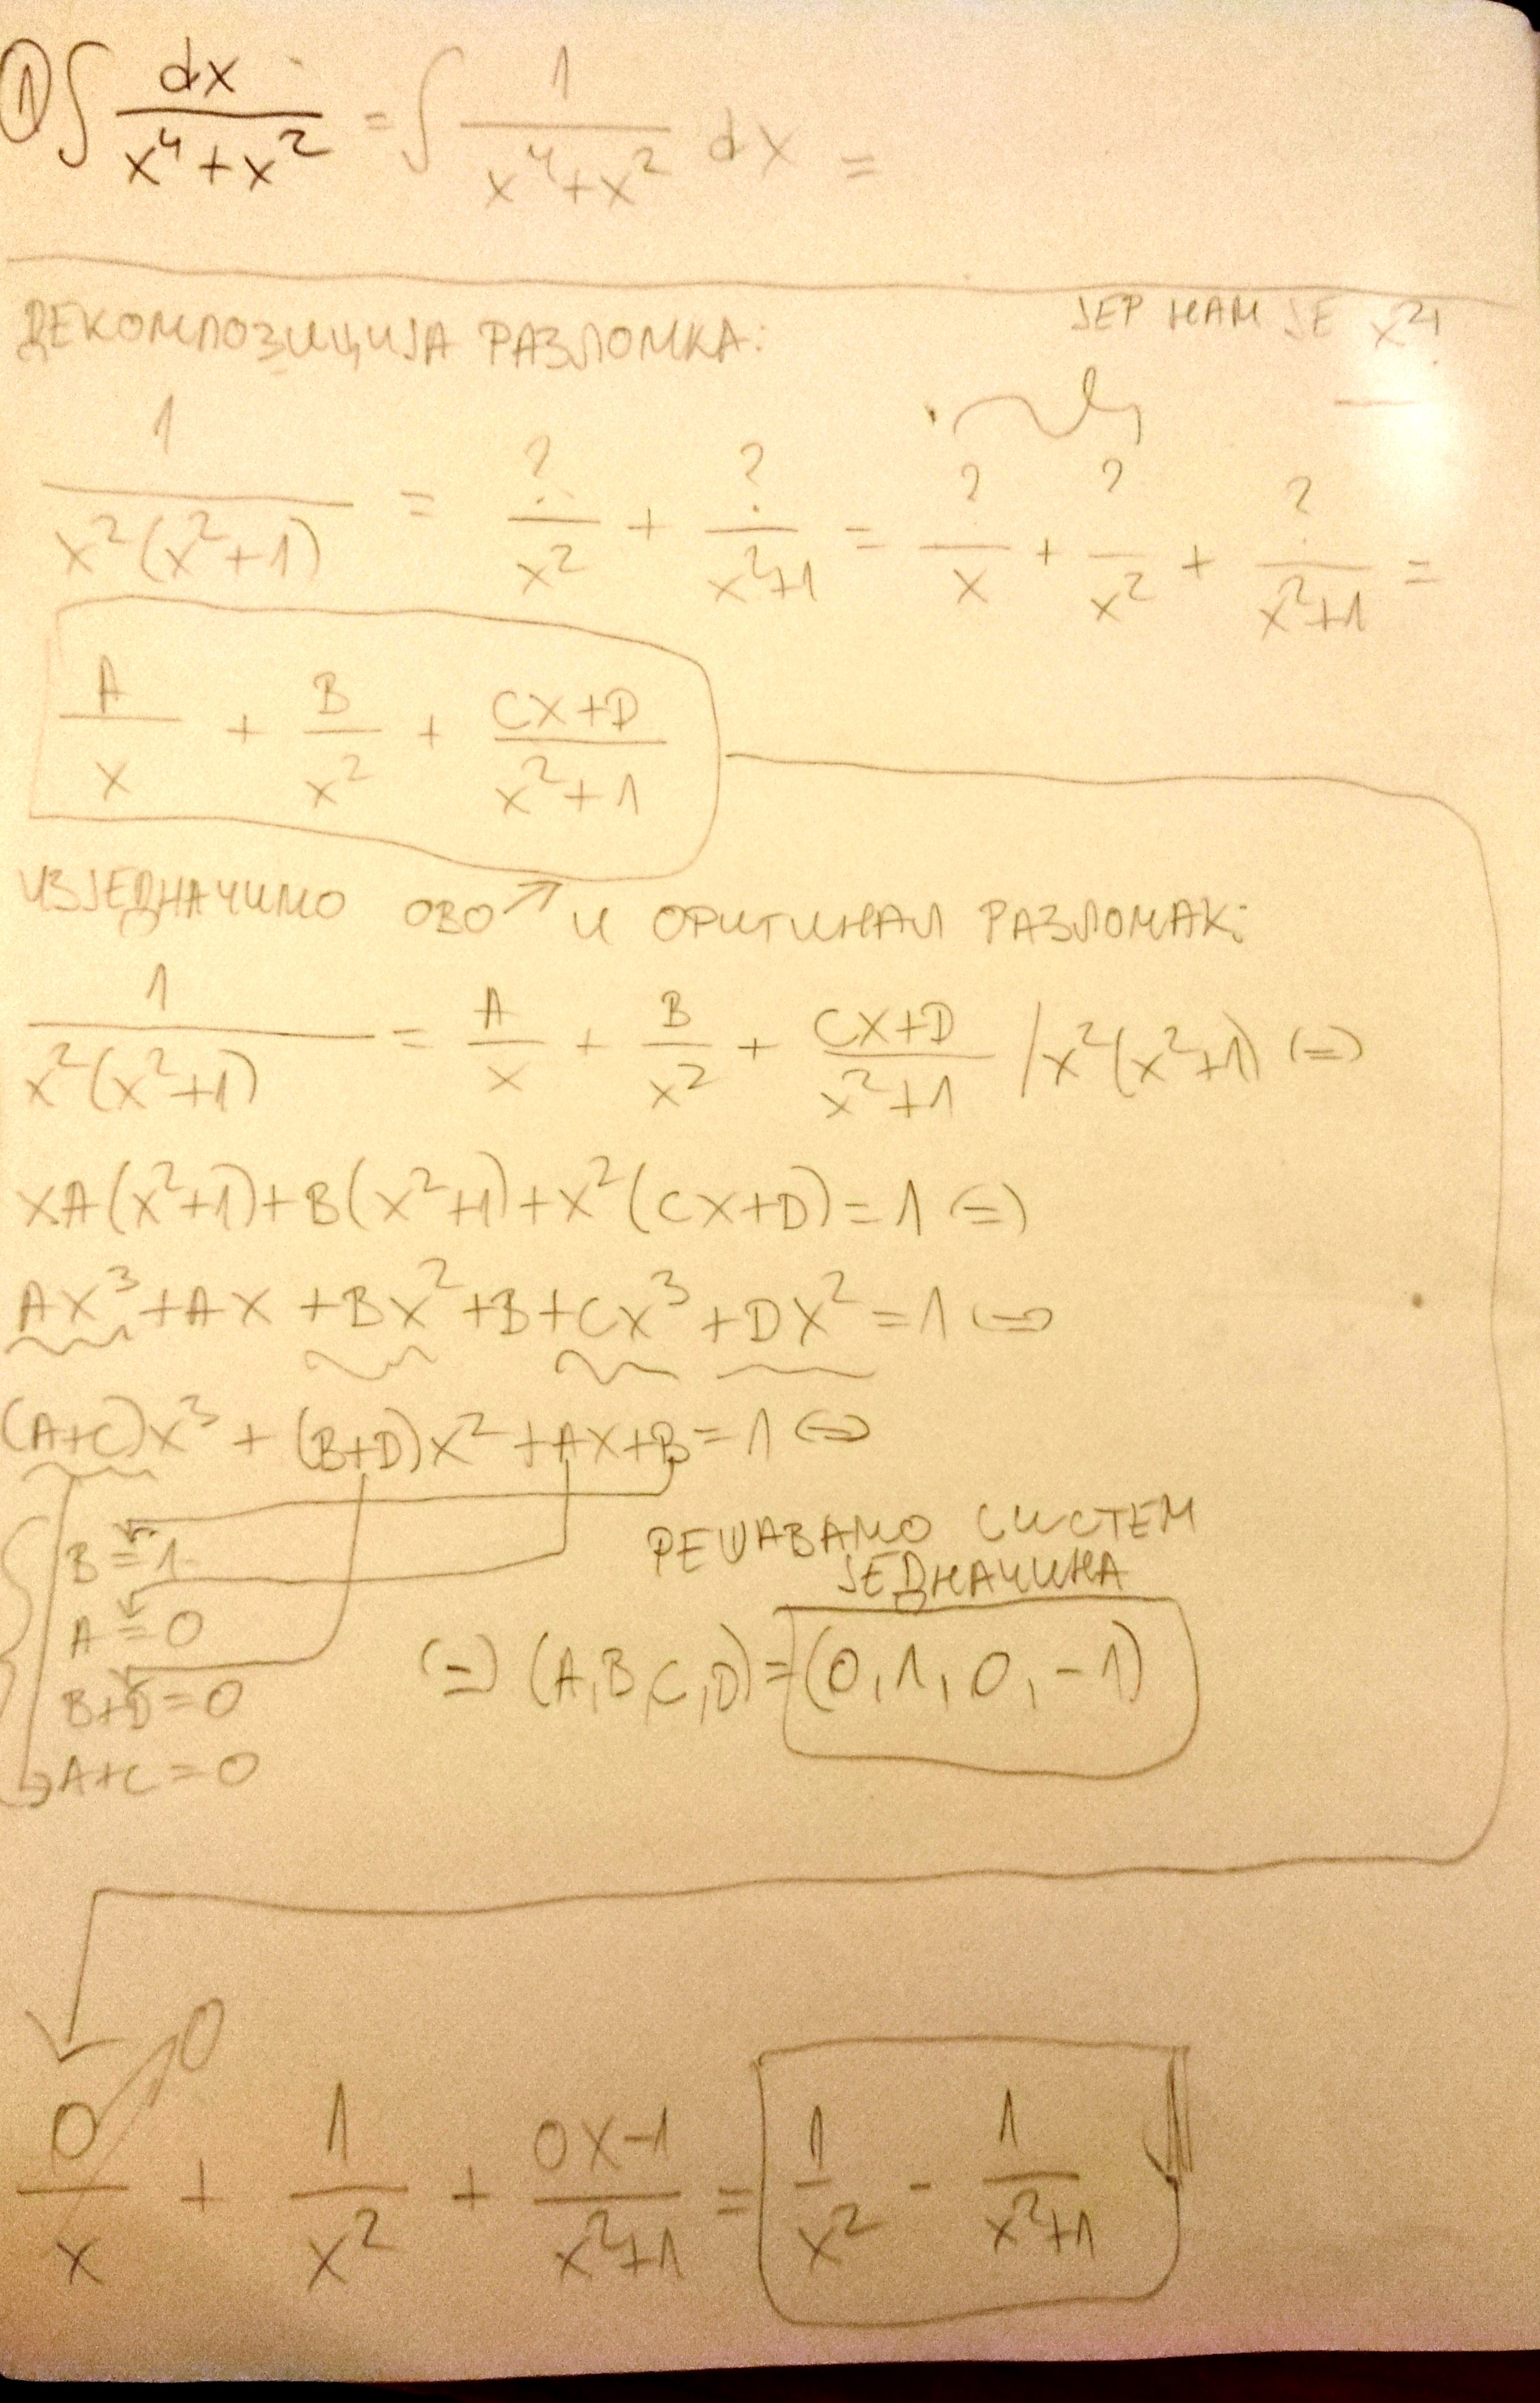 ① ∫ dx/(x⁴+x²) = ∫ 1/(x⁴+x²) dx =
ДЕКОМПОЗИЦИЈА РАЗЛОМКА:
ЈЕР НАМ ЈЕ x²
1/(x²(x²+1)) = ?/x² + ?/(x²+1) = ?/x + ?/x² + ?/(x²+1) =
A/x + B/x² + (Cx+D)/(x²+1)
ИЗЈЕДНАЧИМО ОВО ↗ И ОРИГИНАЛ РАЗЛОМАК:
1/(x²(x²+1)) = A/x + B/x² + (Cx+D)/(x²+1) /x²(x²+1) (=)
xA(x²+1)+B(x²+1)+x²(Cx+D)=1 (=)
Ax³+Ax+Bx²+B+Cx³+Dx²=1 (=)
(A+C)x³+(B+D)x²+Ax+B=1 (=)
B=1
A=0
B+D=0
A+C=0
РЕШАВАМО СИСТЕМ
ЈЕДНАЧИНА
(=) (A,B,C,D)=(0,1,0,-1)
0
0/x + 1/x² + (0x-1)/(x²+1) = 1/x² - 1/(x²+1)